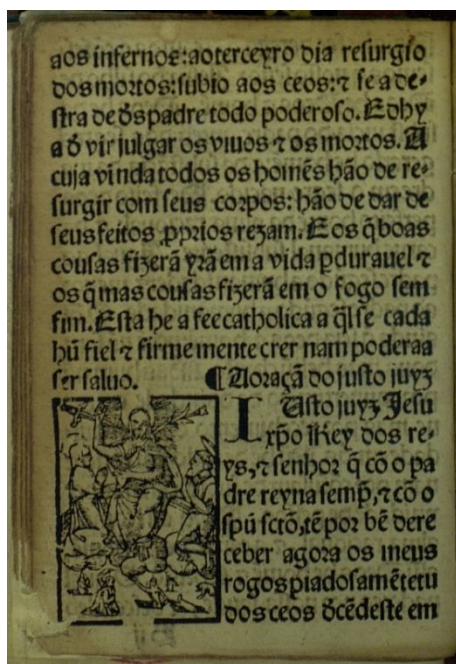 aos infernos: ao terceyro dia resurgio
dos mortos: subio aos ceos: ⁊ se a de-
stra de d̃s padre todo poderoso. E dhy
a d̃ vir julgar os viuos ⁊ os mortos. A
cuja vinda todos os homẽs hão de re-
surgir com seus corpos: hão de dar de
seus feitos ꝓprios rezam. E os q̃ boas
cousas fizerã yrã em a vida ꝑdurauel ⁊
os q̃ mas cousas fizerã em o fogo sem
fim. Esta he a fee catholica a q̃l se cada
hũ fiel ⁊ firme mente crer nam poderaa
ser saluo. ¶ A oraçã do justo juyz
IUsto juyz Jesu
xp̃o Rey dos re-
ys, ⁊ senhor q̃ cõ o pa
dre reyna semp̃, ⁊ cõ o
spũ sctõ, tẽ por bẽ de re
ceber agora os meus
rogos piadosamẽte tu
dos ceos d̃cẽdeste em